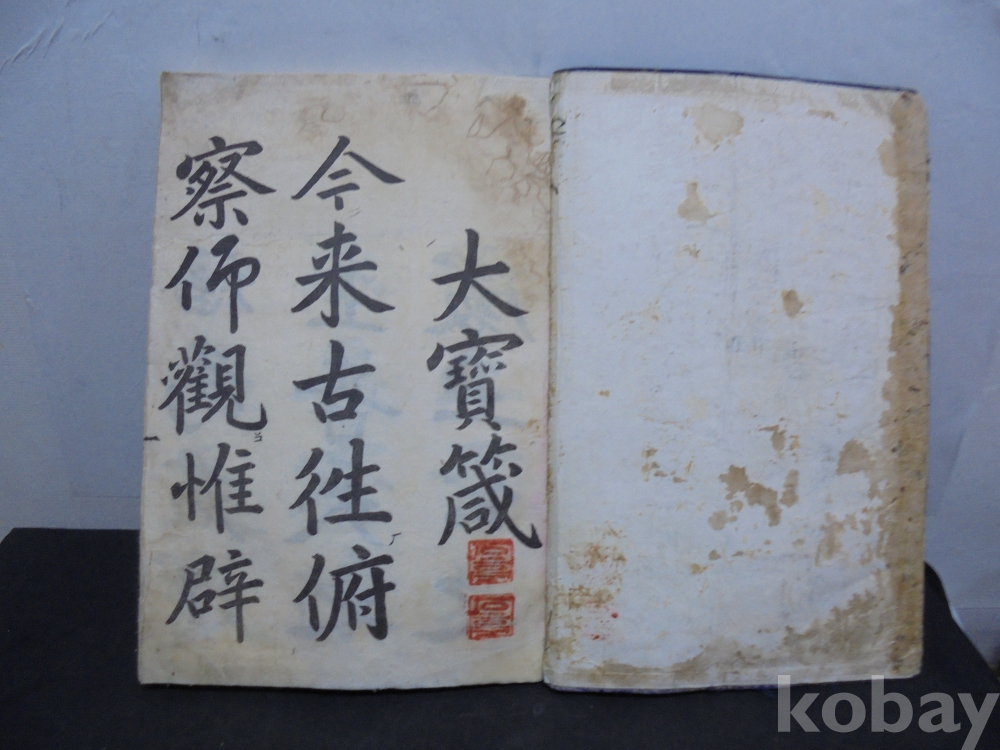 大寶箴
今来古徃俯
察仰觀惟辟
kobay